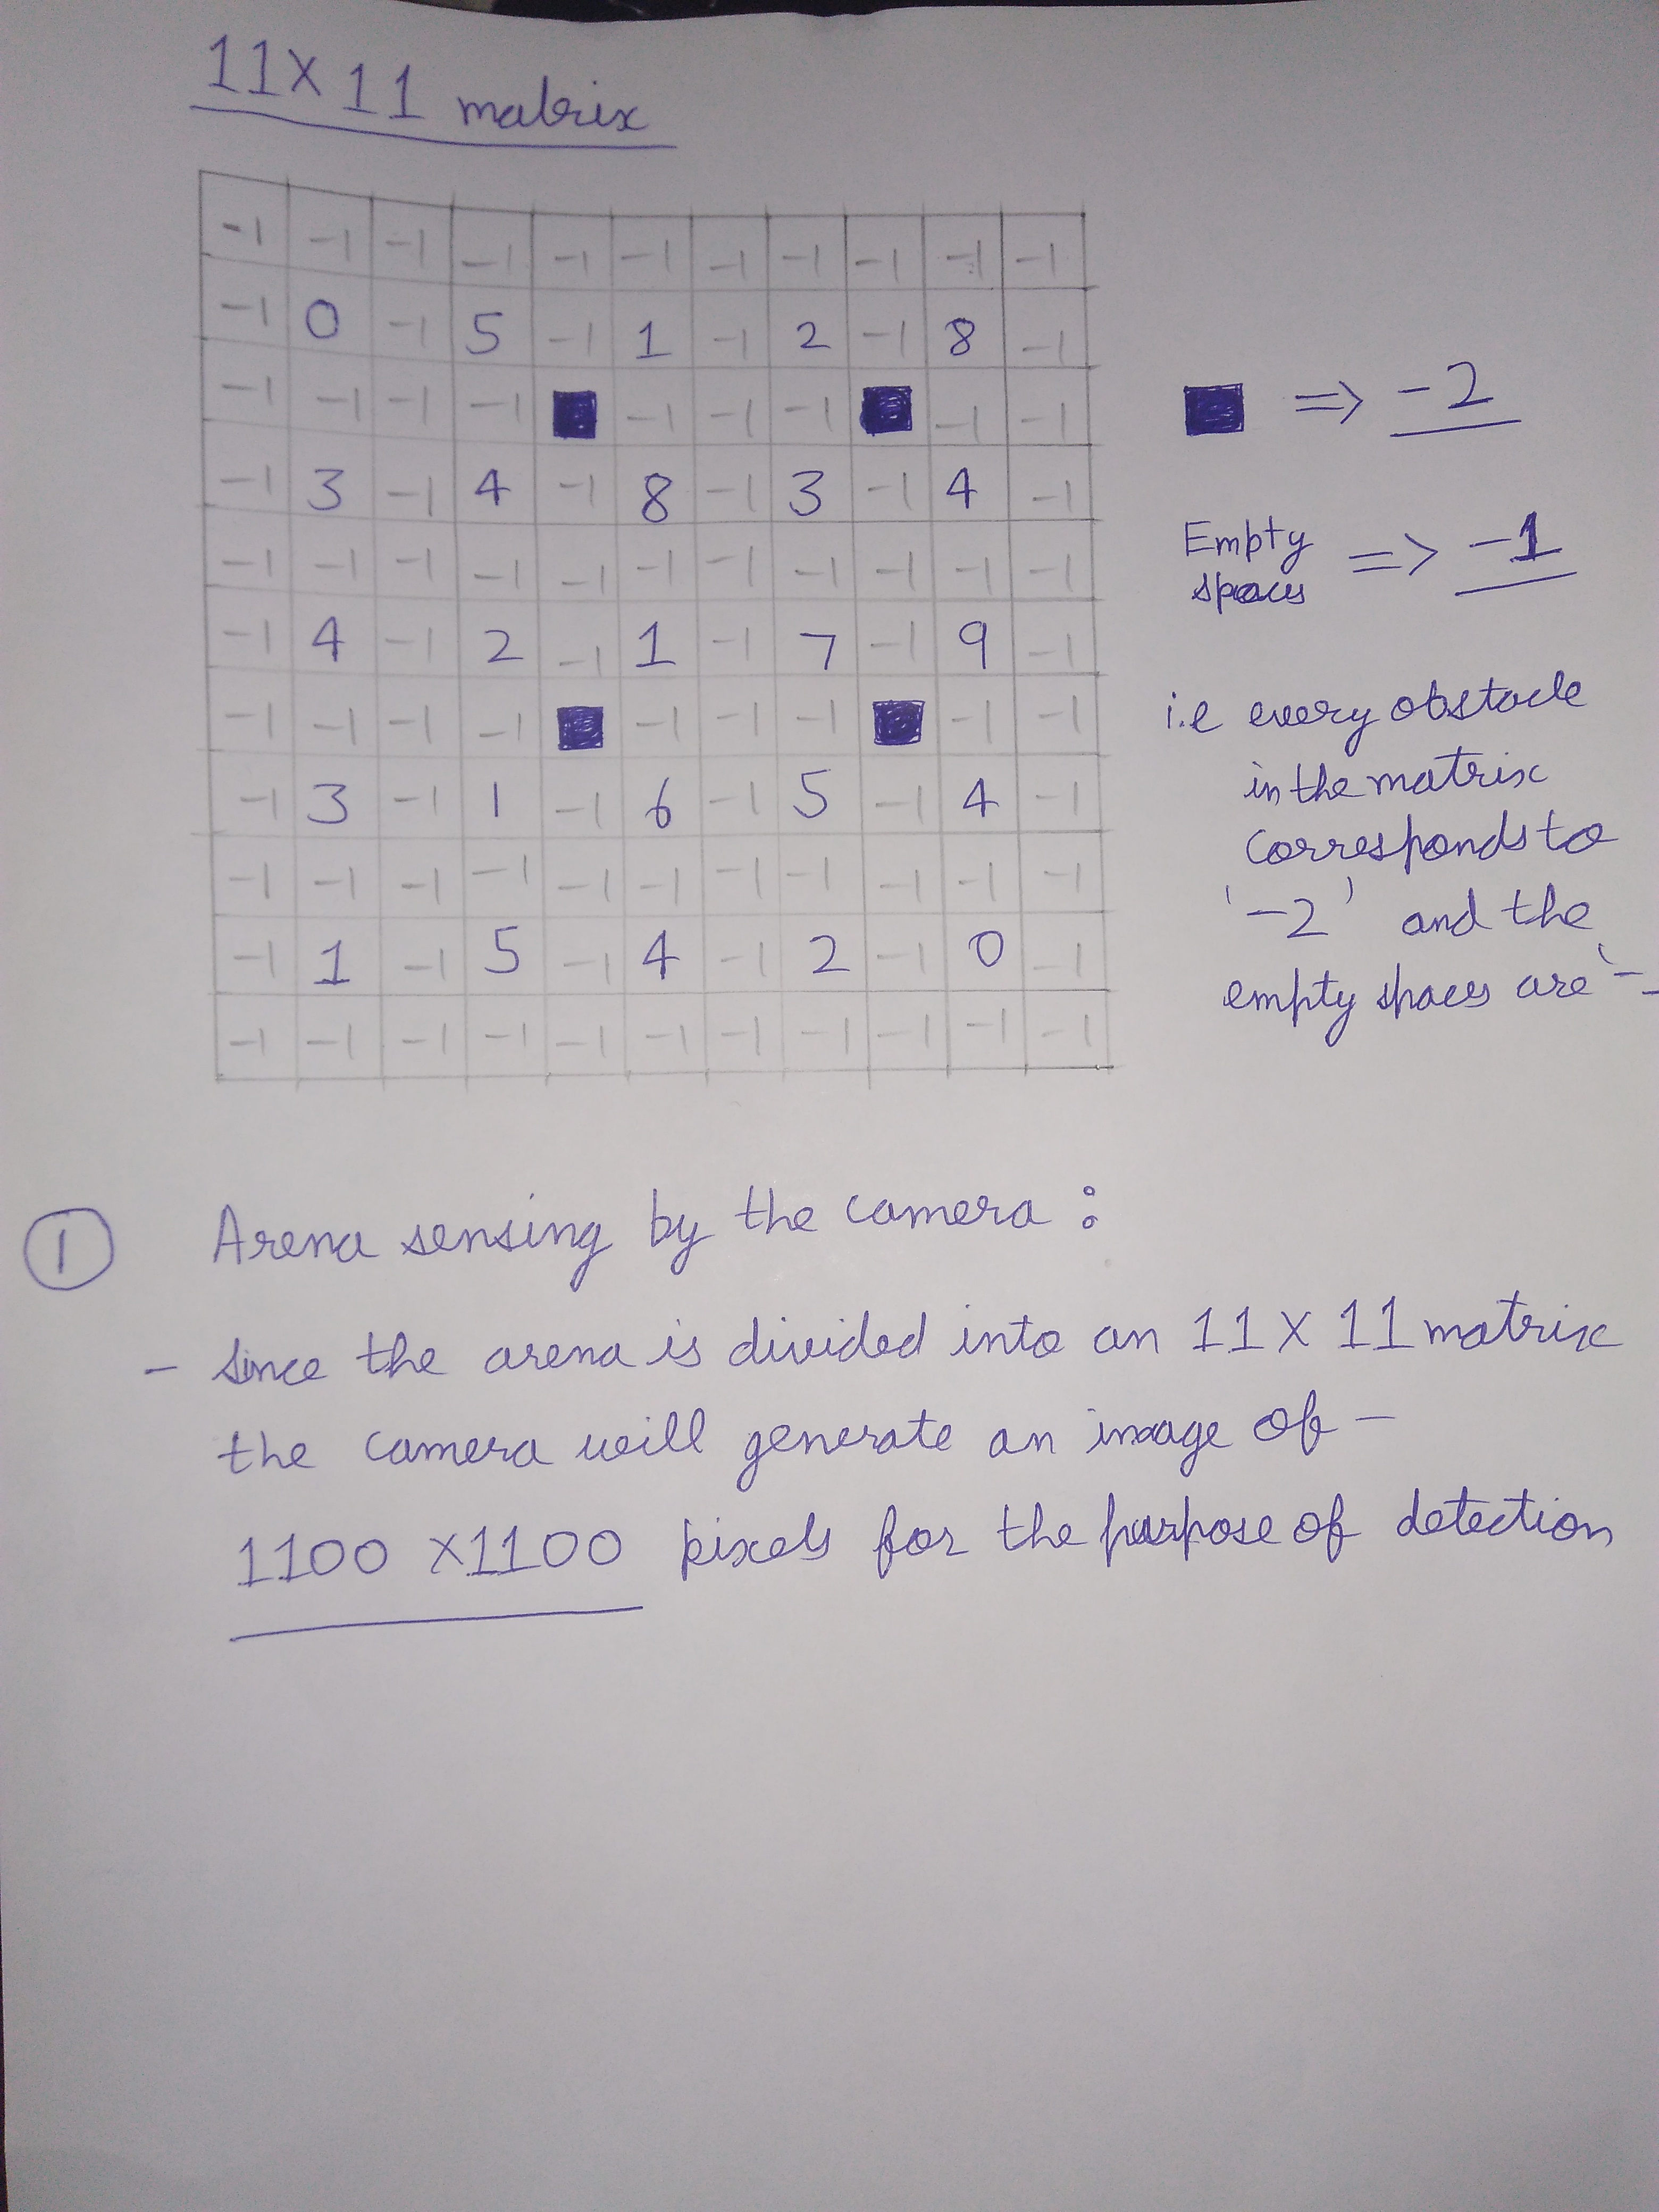 11 X 11 matrix
-1 -1 -1 -1 -1 -1 -1 -1 -1 -1 -1
-1 0 -1 5 -1 1 -1 2 -1 8 -1
-1 -1 -1 -1 -1 -1 -1 -1 -1
⇒ -2
-1 3 -1 4 -1 8 -1 3 -1 4 -1
-1 -1 -1 -1 -1 -1 -1 -1 -1 -1 -1
Empty
spaces => -1
-1 4 -1 2 -1 1 -1 7 -1 9 -1
-1 -1 -1 -1 -1 -1 -1 -1 -1
-1 3 -1 1 -1 6 -1 5 -1 4 -1
-1 -1 -1 -1 -1 -1 -1 -1 -1 -1 -1
-1 1 -1 5 -1 4 -1 2 -1 0 -1
-1 -1 -1 -1 -1 -1 -1 -1 -1 -1 -1
i.e every obstacle
in the matrix
corresponds to
'-2' and the
empty spaces are '-
1 Arena sensing by the camera :
- Since the arena is divided into an 11 X 11 matrix
the camera will generate an image of -
1100 X1100 pixels for the purpose of detection